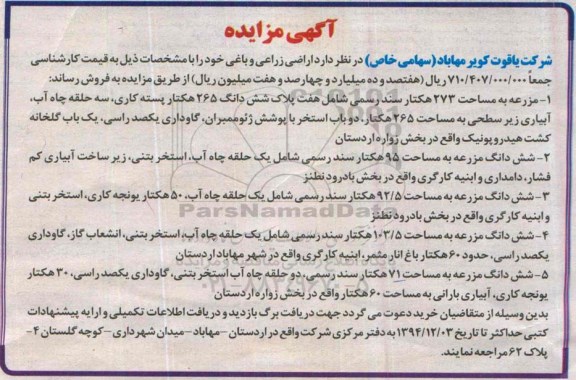 آگهی مزایده
شرکت یاقوت کویر مهاباد (سهامی خاص) در نظر دارد اراضی زراعی و باغی خود را با مشخصات ذیل به قیمت کارشناسی
جمعاً ۷۱۰/۴۰۷/۰۰۰/۰۰۰ ریال (هفتصد و ده میلیارد و چهارصد و هفت میلیون ریال) از طریق مزایده به فروش رساند:
۱- مزرعه به مساحت ۲۷۳ هکتار سند رسمی شامل هفت پلاک شش دانگ ۲۶۵ هکتار پسته کاری، سه حلقه چاه آب،
آبیاری زیر سطحی به مساحت ۲۶۵ هکتار، دو باب استخر با پوشش ژئوممبران، گاوداری یکصد راسی، یک باب گلخانه
کشت هیدروپونیک واقع در بخش زواره اردستان
۲- شش دانگ مزرعه به مساحت ۹۵ هکتار سند رسمی شامل یک حلقه چاه آب، استخر بتنی، زیر ساخت آبیاری کم
فشار، دامداری و ابنیه کارگری واقع در بخش بادرود نطنز
۳- شش دانگ مزرعه به مساحت ۹۲/۵ هکتار سند رسمی شامل یک حلقه چاه آب، ۵۰ هکتار یونجه کاری، استخر بتنی
و ابنیه کارگری واقع در بخش بادرود نطنز
۴- شش دانگ مزرعه به مساحت ۱۰۳/۵ هکتار سند رسمی شامل یک حلقه چاه آب، استخر بتنی، انشعاب گاز، گاوداری
یکصد راسی، حدود ۶۰ هکتار باغ انار مثمر، ابنیه کارگری واقع در شهر مهاباد اردستان
۵- شش دانگ مزرعه به مساحت ۷۱ هکتار سند رسمی، دو حلقه چاه آب استخر بتنی، گاوداری یکصد راسی، ۳۰ هکتار
یونجه کاری، آبیاری بارانی به مساحت ۶۰ هکتار واقع در بخش زواره اردستان
بدین وسیله از متقاضیان خرید دعوت می گردد جهت دریافت برگ بازدید و دریافت اطلاعات تکمیلی و ارایه پیشنهادات
کتبی حداکثر تا تاریخ ۱۳۹۴/۱۲/۰۳ به دفتر مرکزی شرکت واقع در اردستان - مهاباد - میدان شهرداری - کوچه گلستان ۴ -
پلاک ۶۲ مراجعه نمایند.
ParsNamadData